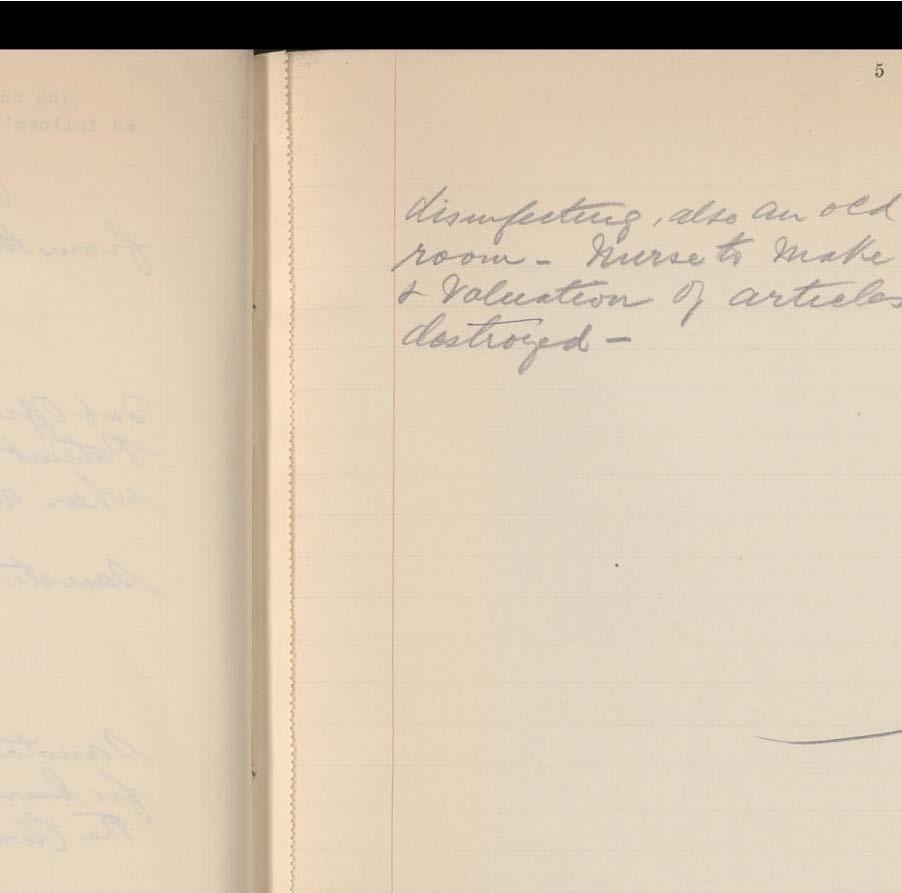 5
disinfecting, also an old
room - Nurse to make
& Valuation of articles
destroyed -